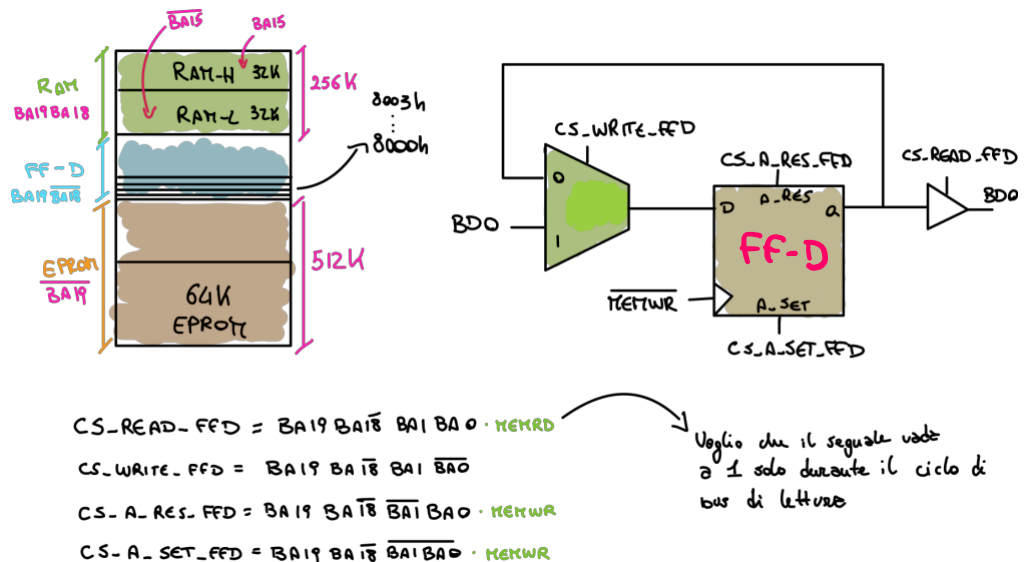 B̅A̅1̅5̅
BA15
RAM-H 32K
RAM-L 32K
256K
RAM
BA19BA18
8003h
....
8000h
FF-D
BA19B̅A̅1̅8̅
EPROM
B̅A̅1̅9̅
64K
EPROM
512K
CS_WRITE_FFD
0
1
BD0
CS_A_RES_FFD
A_RES
D
Q
FF-D
A_SET
M̅E̅M̅W̅R̅
CS_A_SET_FFD
CS_READ_FFD
BD0
CS_READ_FFD = BA19 BA1̅8̅ BA1 BA0 · MEMRD
CS_WRITE_FFD = BA19 BA1̅8̅ BA1 B̅A̅0̅
CS_A_RES_FFD = BA19 BA1̅8̅ B̅A̅1̅ BA0 · MEMWR
CS_A_SET_FFD = BA19 BA1̅8̅ B̅A̅1̅ B̅A̅0̅ · MEMWR
Voglio che il segnale vada
a 1 solo durante il ciclo di
bus di lettura